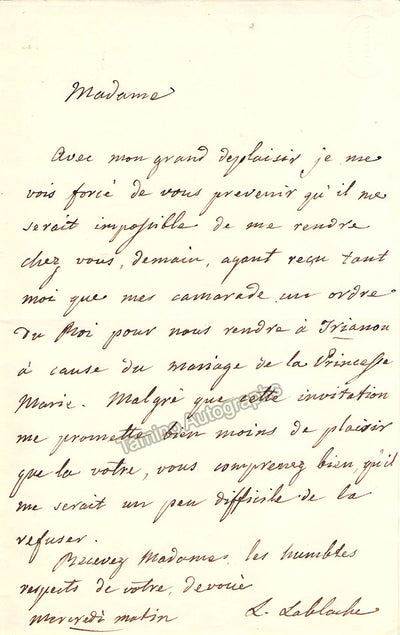 Madame
Avec mon grand deplaisir je me
vois forcé de vous prevenir qu'il me
serait impossible de me rendre
chez vous, demain, ayant reçu tant
moi que mes camarade un ordre
du Roi pour nous rendre à Trianon
à cause du mariage de la Princesse
Marie. Malgré que cette invitation
me promette bien moins de plaisir
que la votre, vous comprenez bien qu'il
me serait un peu difficile de la
refuser.
Recevez Madame, les humbles
respects de votre, devoué
Mercredi matin L. Lablache
Tamino Autographs